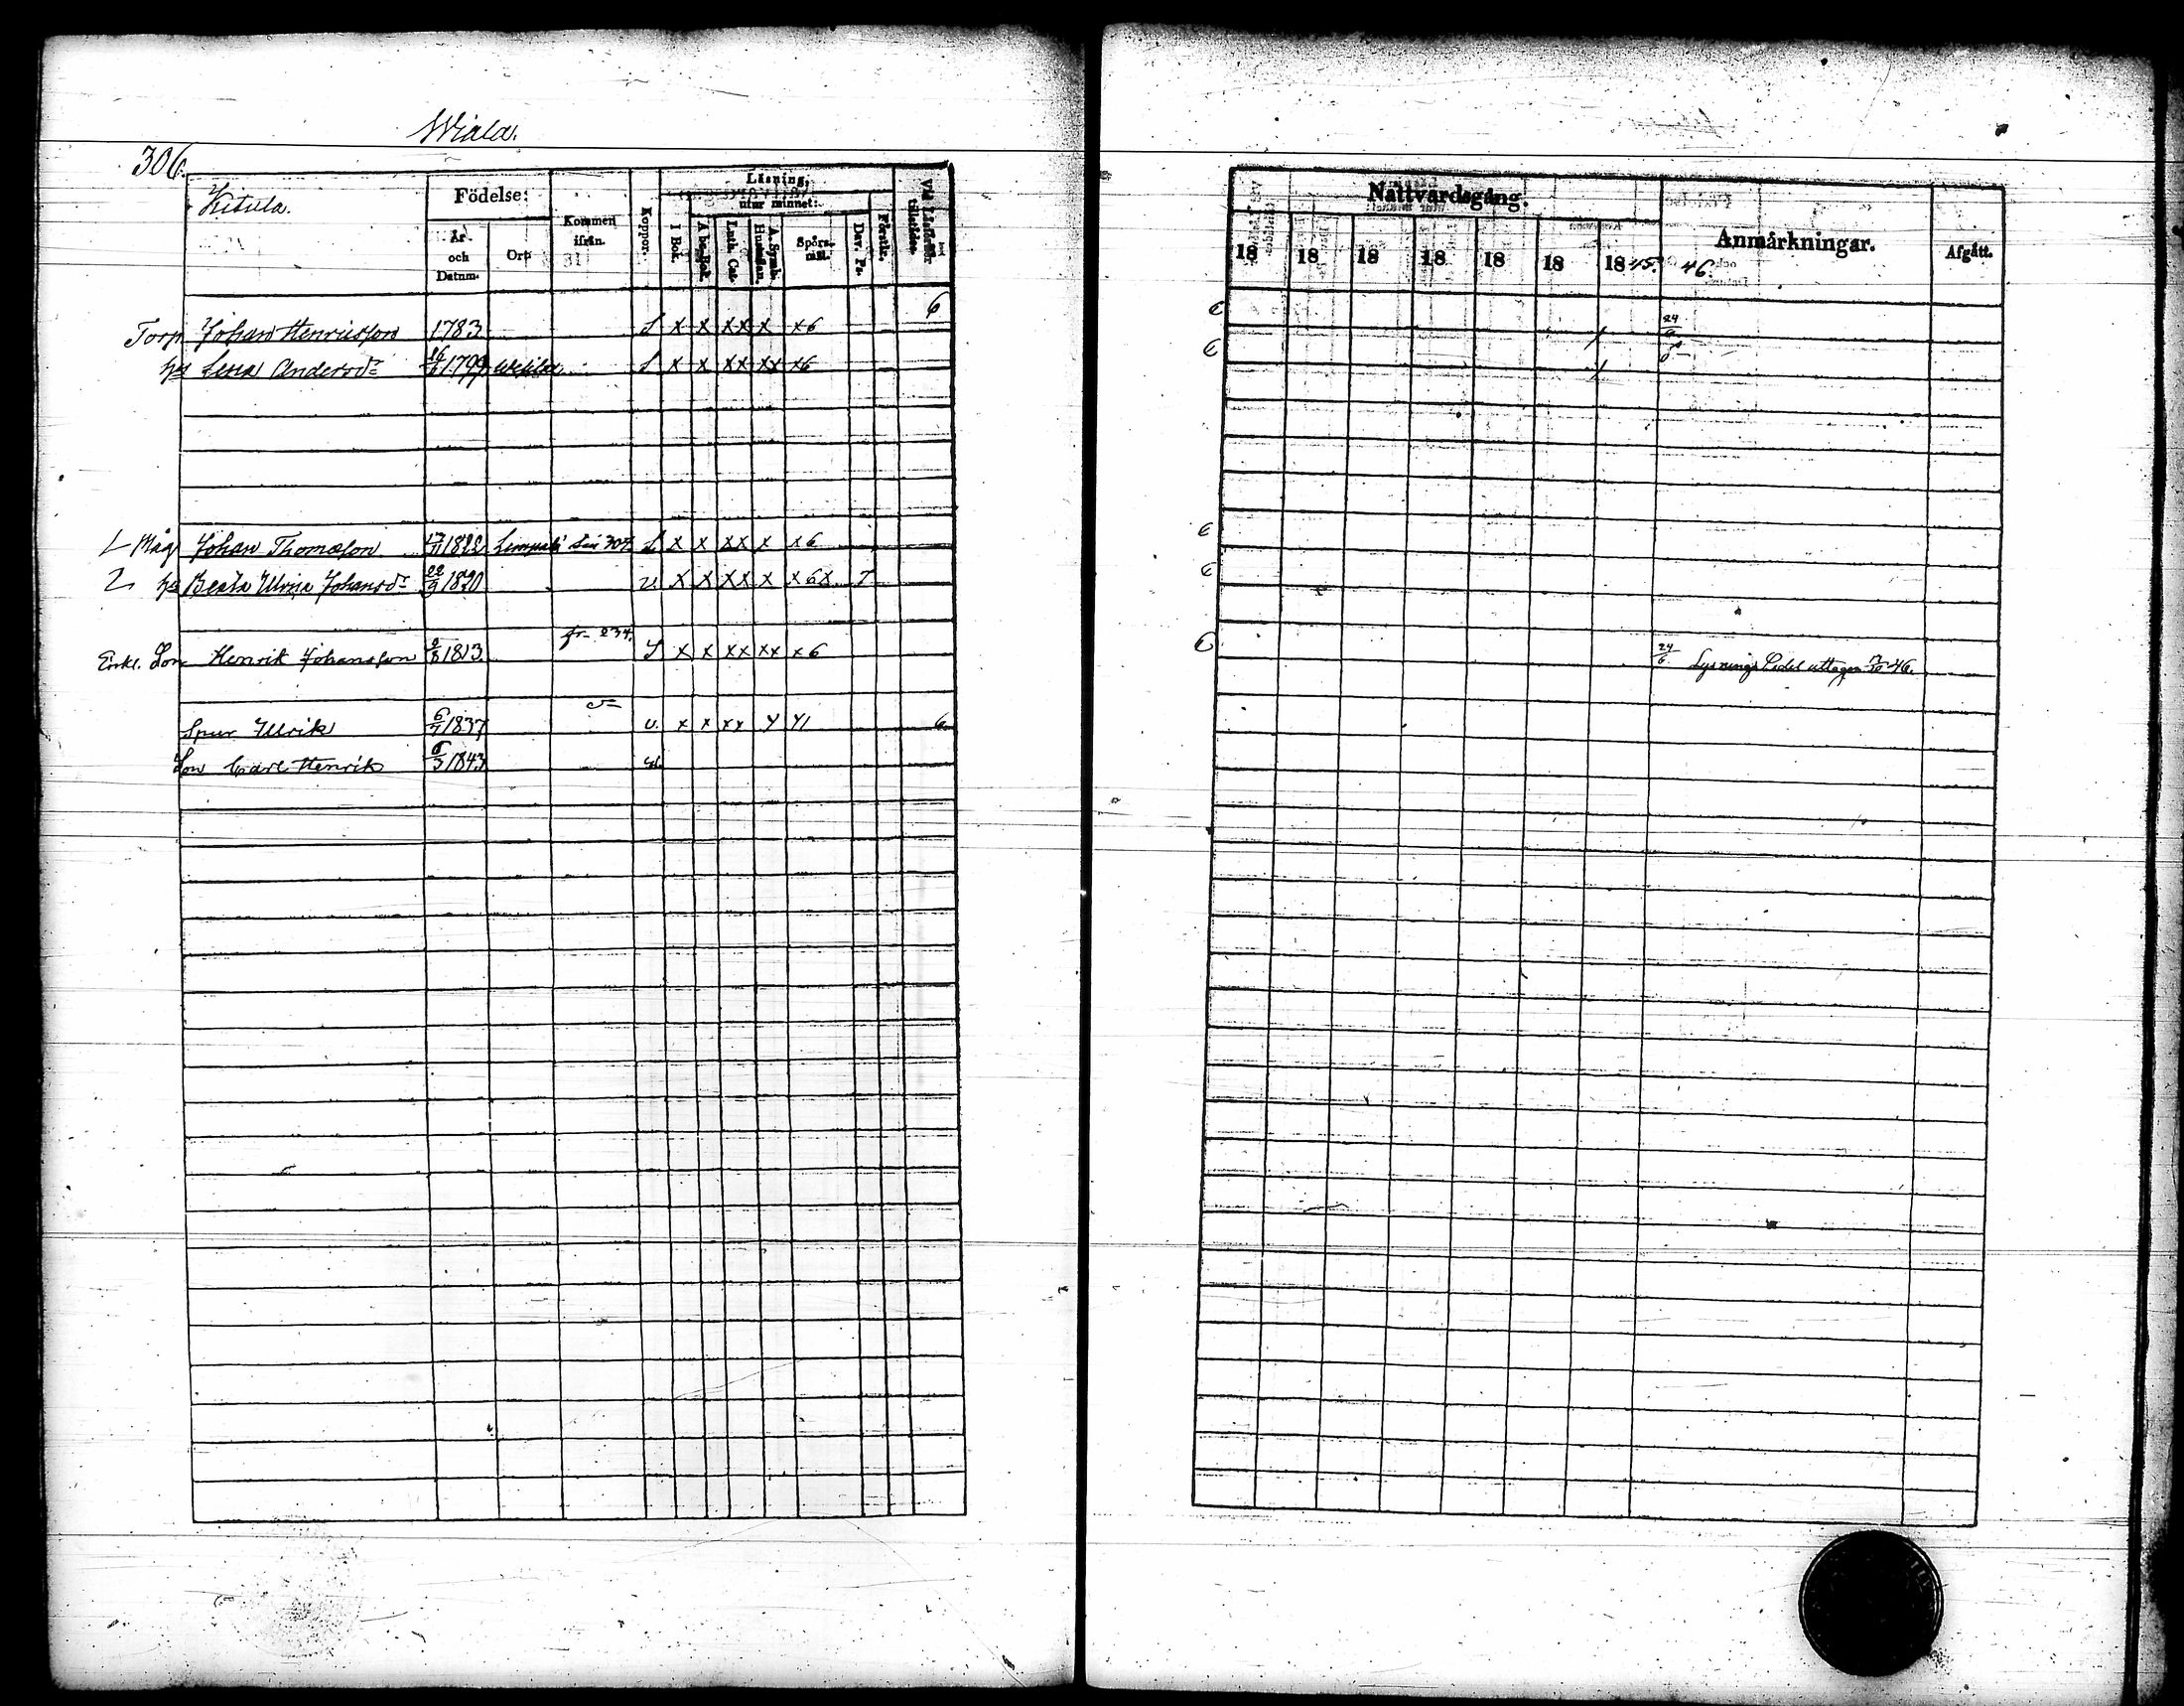 Wiala.
306.
Kitula.
Födelse:
År och Datum.
Ort
Kommen ifrån.
Koppor.
Läsning,
utur minnet:
I Bok.
A be. Bok.
Luth. Cat.
A. Symb. Hustaflan.
Spörsmål.
Dav. Ps.
Förstår.
Vid Läsförhör tillstädes.
6
Torp Johan Henricsson 1783 S x x xx x x6
hu Lena Andersdr 1799 S x x xx xx x6
Måg Johan Thomasson 1822 Limpali 307 S x x xx x x6
hu Beata Ulrica Johansdr 22/9 1820 v. x x xx x x6x 7
fr. 234.
Enkl. Son Henrik Johansson 1813 S x x xx xx x6
Spur Ulrik 6/7 1837 v. x x xx y y1 6
Son Carl Henrik 1843
Nattvardsgång.
18 18 18 18 18 18 1845. 46.
Anmärkningar.
Afgått.
24/6
24/6 Lysnings Sedel uttagen 46.